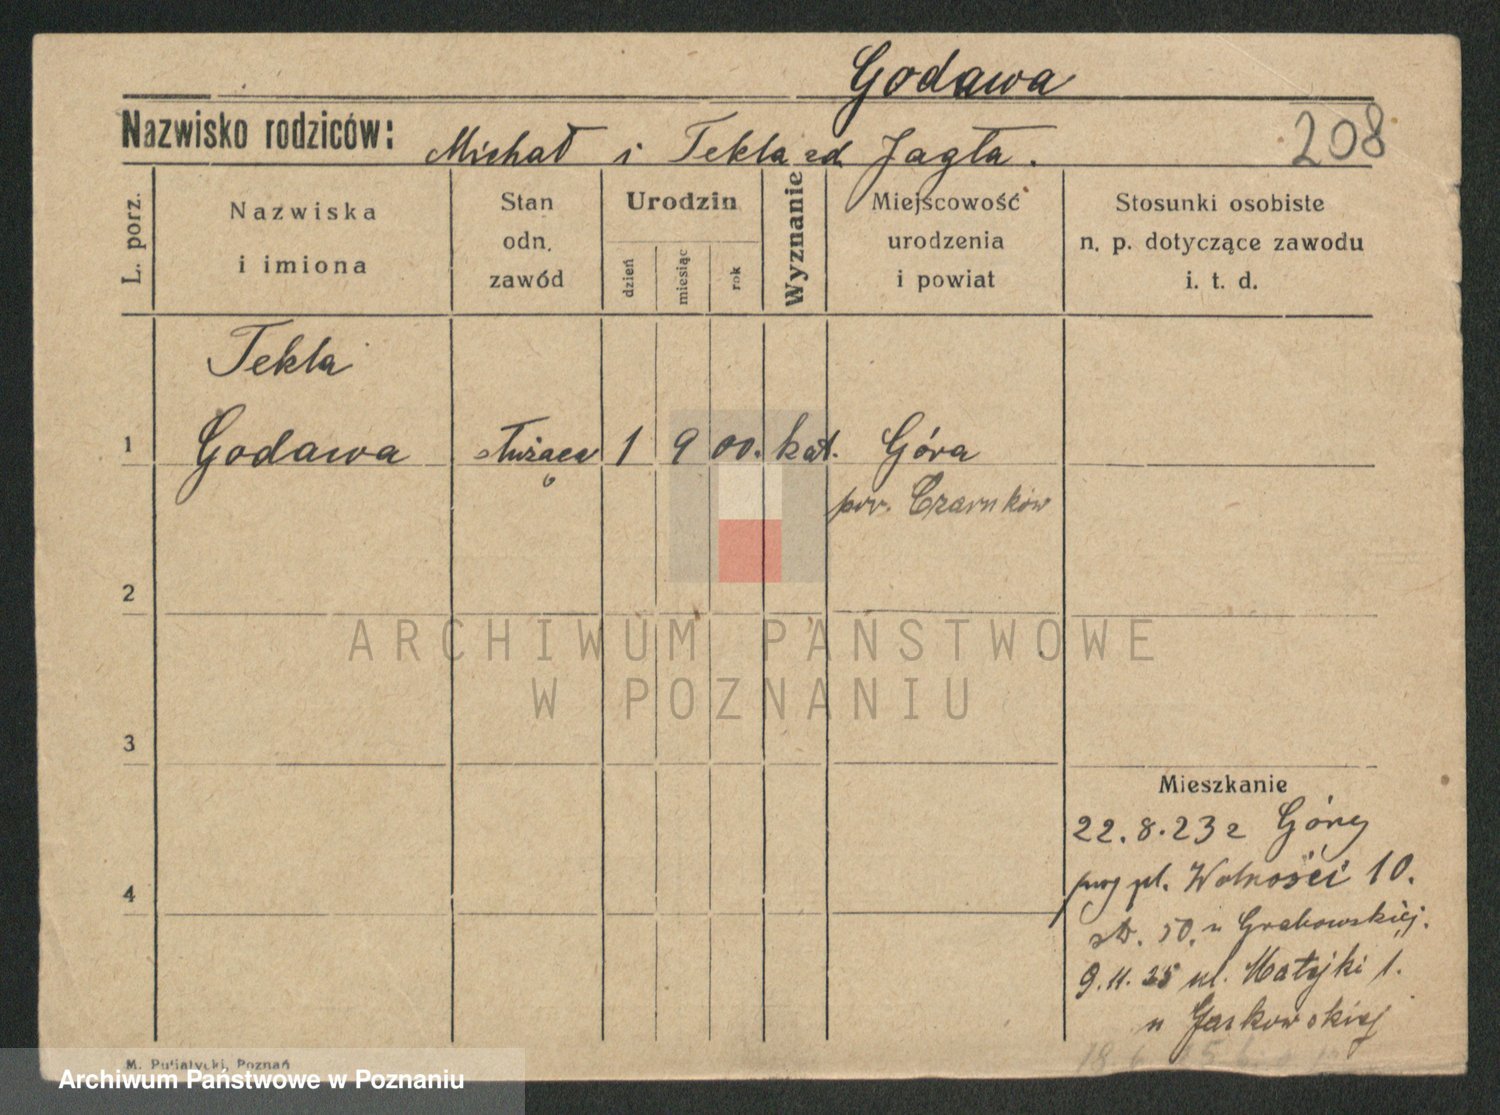 Godawa
Nazwisko rodziców: Michał i Tekla zd Jagła.
208
L. porz.
Nazwiska
i imiona
Stan
odn.
zawód
Urodzin
dzień
miesiąc
rok
Wyznanie
Miejscowość
urodzenia
i powiat
Stosunki osobiste
n. p. dotyczące zawodu
i. t. d.
Tekla
1 Godawa służąca 1 9 00. kat. Góra
pow. Czarnków
2
ARCHIWUM PAŃSTWOWE
W POZNANIU
3
Mieszkanie
22.8.23 z Góry
pl. Wolności 10.
4
u Grabowskiej.
9.11.25 ul. Matejki 1.
u Jaskowskiej
M. Putiatycki, Poznań
Archiwum Państwowe w Poznaniu